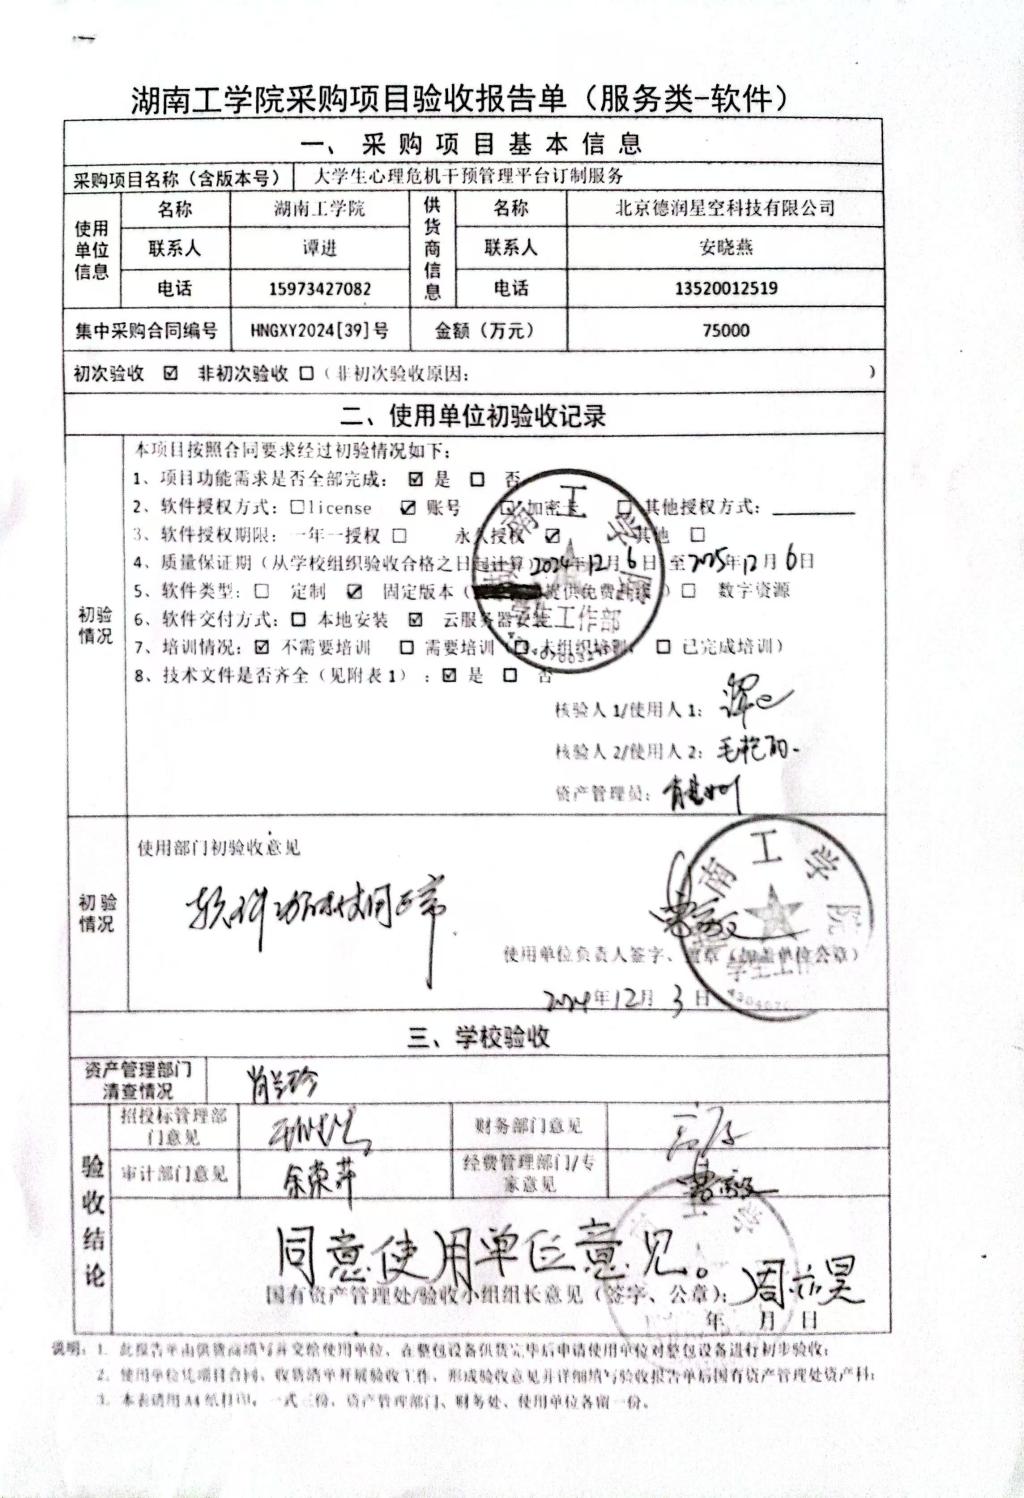 湖南工学院采购项目验收报告单（服务类-软件）
一、采购项目基本信息
采购项目名称（含版本号） 大学生心理危机干预管理平台订制服务
使用单位信息 名称 湖南工学院 供货商信息 名称 北京德润星空科技有限公司
联系人 谭进 联系人 安晓燕
电话 15973427082 电话 13520012519
集中采购合同编号 HNGXY2024[39]号 金额（万元） 75000
初次验收 ☑ 非初次验收 □（非初次验收原因： ）
二、使用单位初验收记录
初验情况
本项目按照合同要求经过初验情况如下：
1、项目功能需求是否全部完成：☑ 是 □ 否
2、软件授权方式：□license ☑ 账号 □ 加密卡 □ 其他授权方式：________
3、软件授权期限：一年一授权 □ 永久授权 ☑ 其他 □
4、质量保证期（从学校组织验收合格之日起计算）2024年12月6日至2025年12月6日
5、软件类型：□ 定制 ☑ 固定版本（提供免费升级）□ 数字资源
6、软件交付方式：□ 本地安装 ☑ 云服务器安装
7、培训情况：☑ 不需要培训 □ 需要培训（□ 未组织培训， □ 已完成培训）
8、技术文件是否齐全（见附表1）：☑ 是 □ 否
核验人1/使用人1：
核验人2/使用人2：
资产管理员：
湖南工学院
学生工作部
初验情况
使用部门初验收意见
软件功能使用正常
使用单位负责人签字、盖章（加盖单位公章）
2024年12月3日
南工学院
学生工作
三、学校验收
资产管理部门清查情况 肖兰珍
验收结论
招投标管理部门意见 财务部门意见
审计部门意见 余荣萍 经费管理部门/专家意见
同意使用单位意见。
国有资产管理处/验收小组组长意见（签字、公章）：周亦昊
年 月 日
说明：1、此报告单由供货商填写并交给使用单位，在整包设备供货完毕后申请使用单位对整包设备进行初步验收；
2、使用单位凭项目合同、收货清单开展验收工作，形成验收意见并详细填写验收报告单后国有资产管理处资产科；
3、本表请用A4纸打印，一式三份，资产管理部门、财务处、使用单位各留一份。